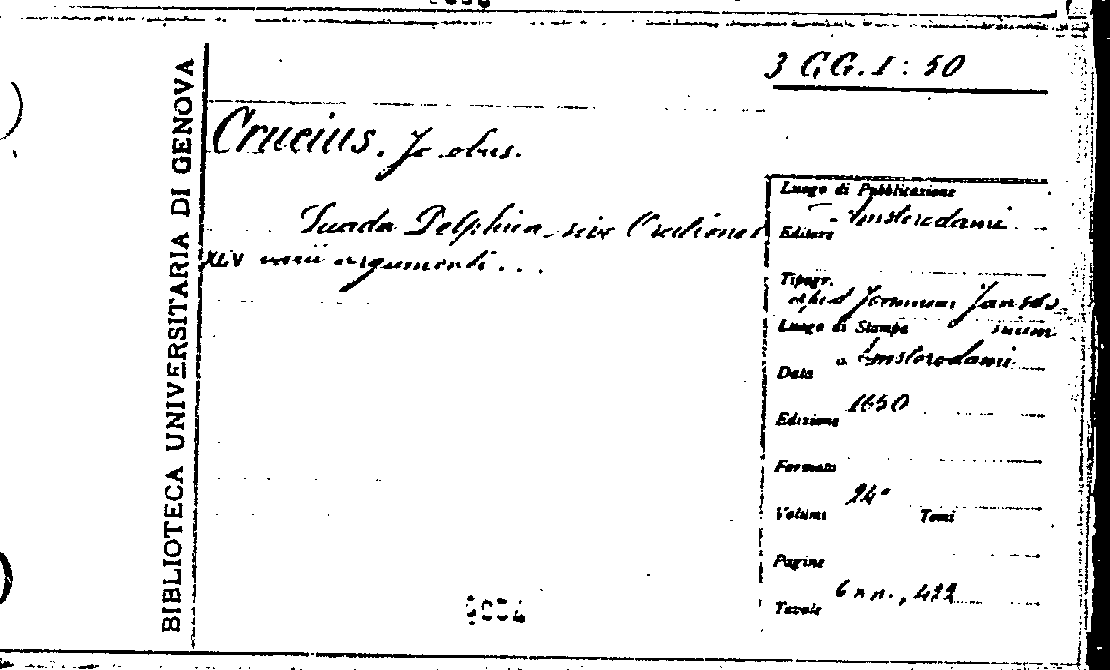 3 GG.1:50
BIBLIOTECA UNIVERSITARIA DI GENOVA
Crucius. Ja obus.
Suada Delphica, sive Orationes
XLV varii argumenti...
Luogo di Pubblicazione
Amsterodami
Editore
Tipogr.
apud Jansso
Luogo di Stampa nium
Amstelodami
Data
1650
Edizione
Formato
24°
Volumi Tomi
Pagine
6 nn., 422
Tavole